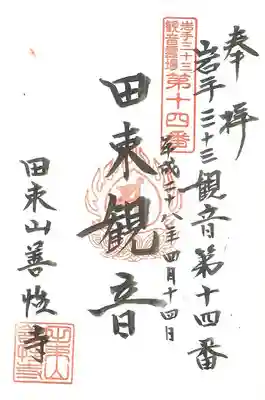 奉拝
岩手三十三観音第十四番
岩手三十三
観音霊場
第十四番
平成二八年四月十四日
田束観音
田束山善悦寺